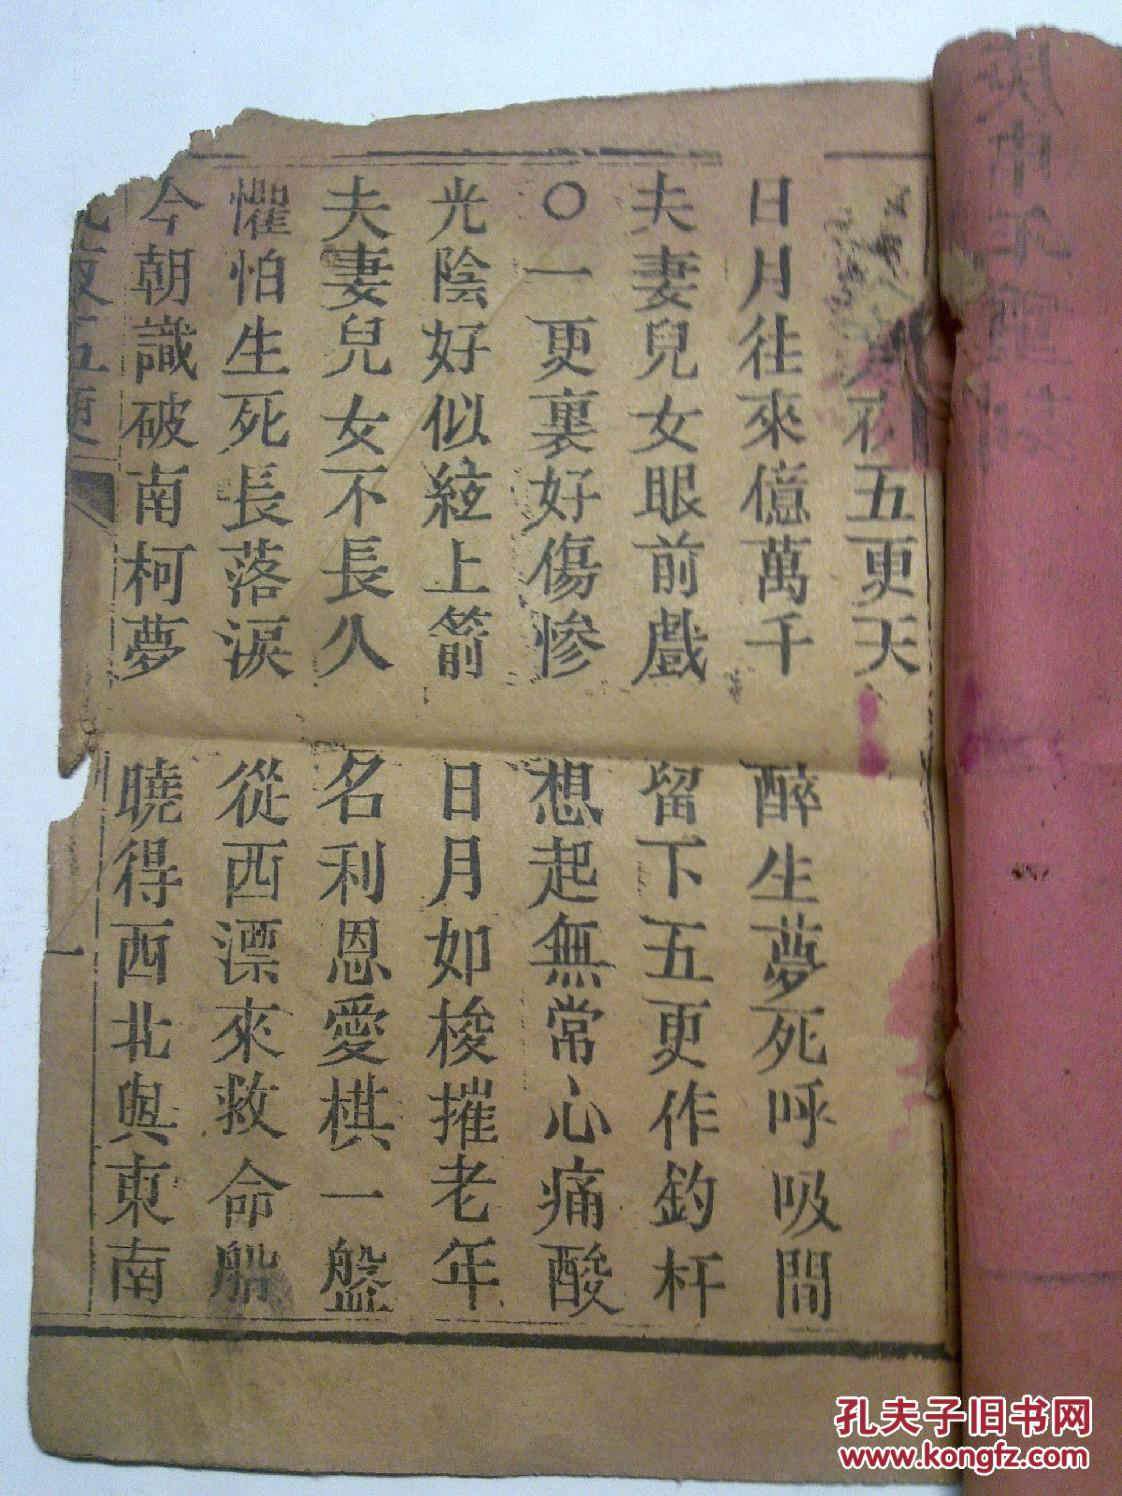 五更天
日月往來億萬千 醉生夢死呼吸間
夫妻兒女眼前戲 留下五更作釣杆
〇一更裏好傷慘 想起無常心痛酸
光陰好似絃上箭 日月如梭摧老年
夫妻兒女不長久 名利恩愛棋一盤
懼怕生死長落淚 從西漂來救命船
今朝識破南柯夢 曉得西北與東南
五更
一
孔夫子旧书网
www.kongfz.com